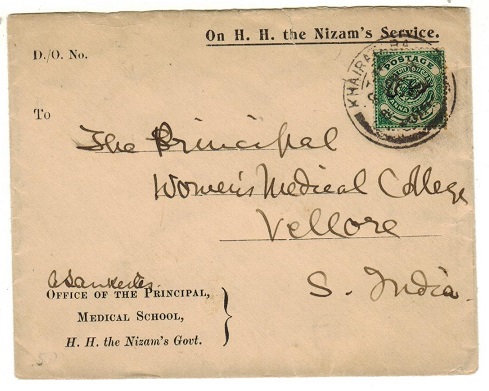 On H. H. the Nizam's Service.
D./O. No.
POSTAGE
To
The Principal
Women's Medical College
Vellore
S. India.
OFFICE OF THE PRINCIPAL,
MEDICAL SCHOOL,
H. H. the Nizam's Govt.